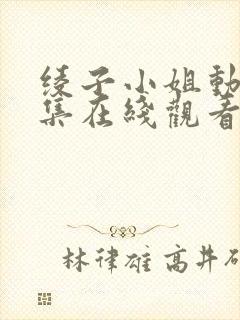 绫子小姐動
集在綫觀看
林律雄 高井研